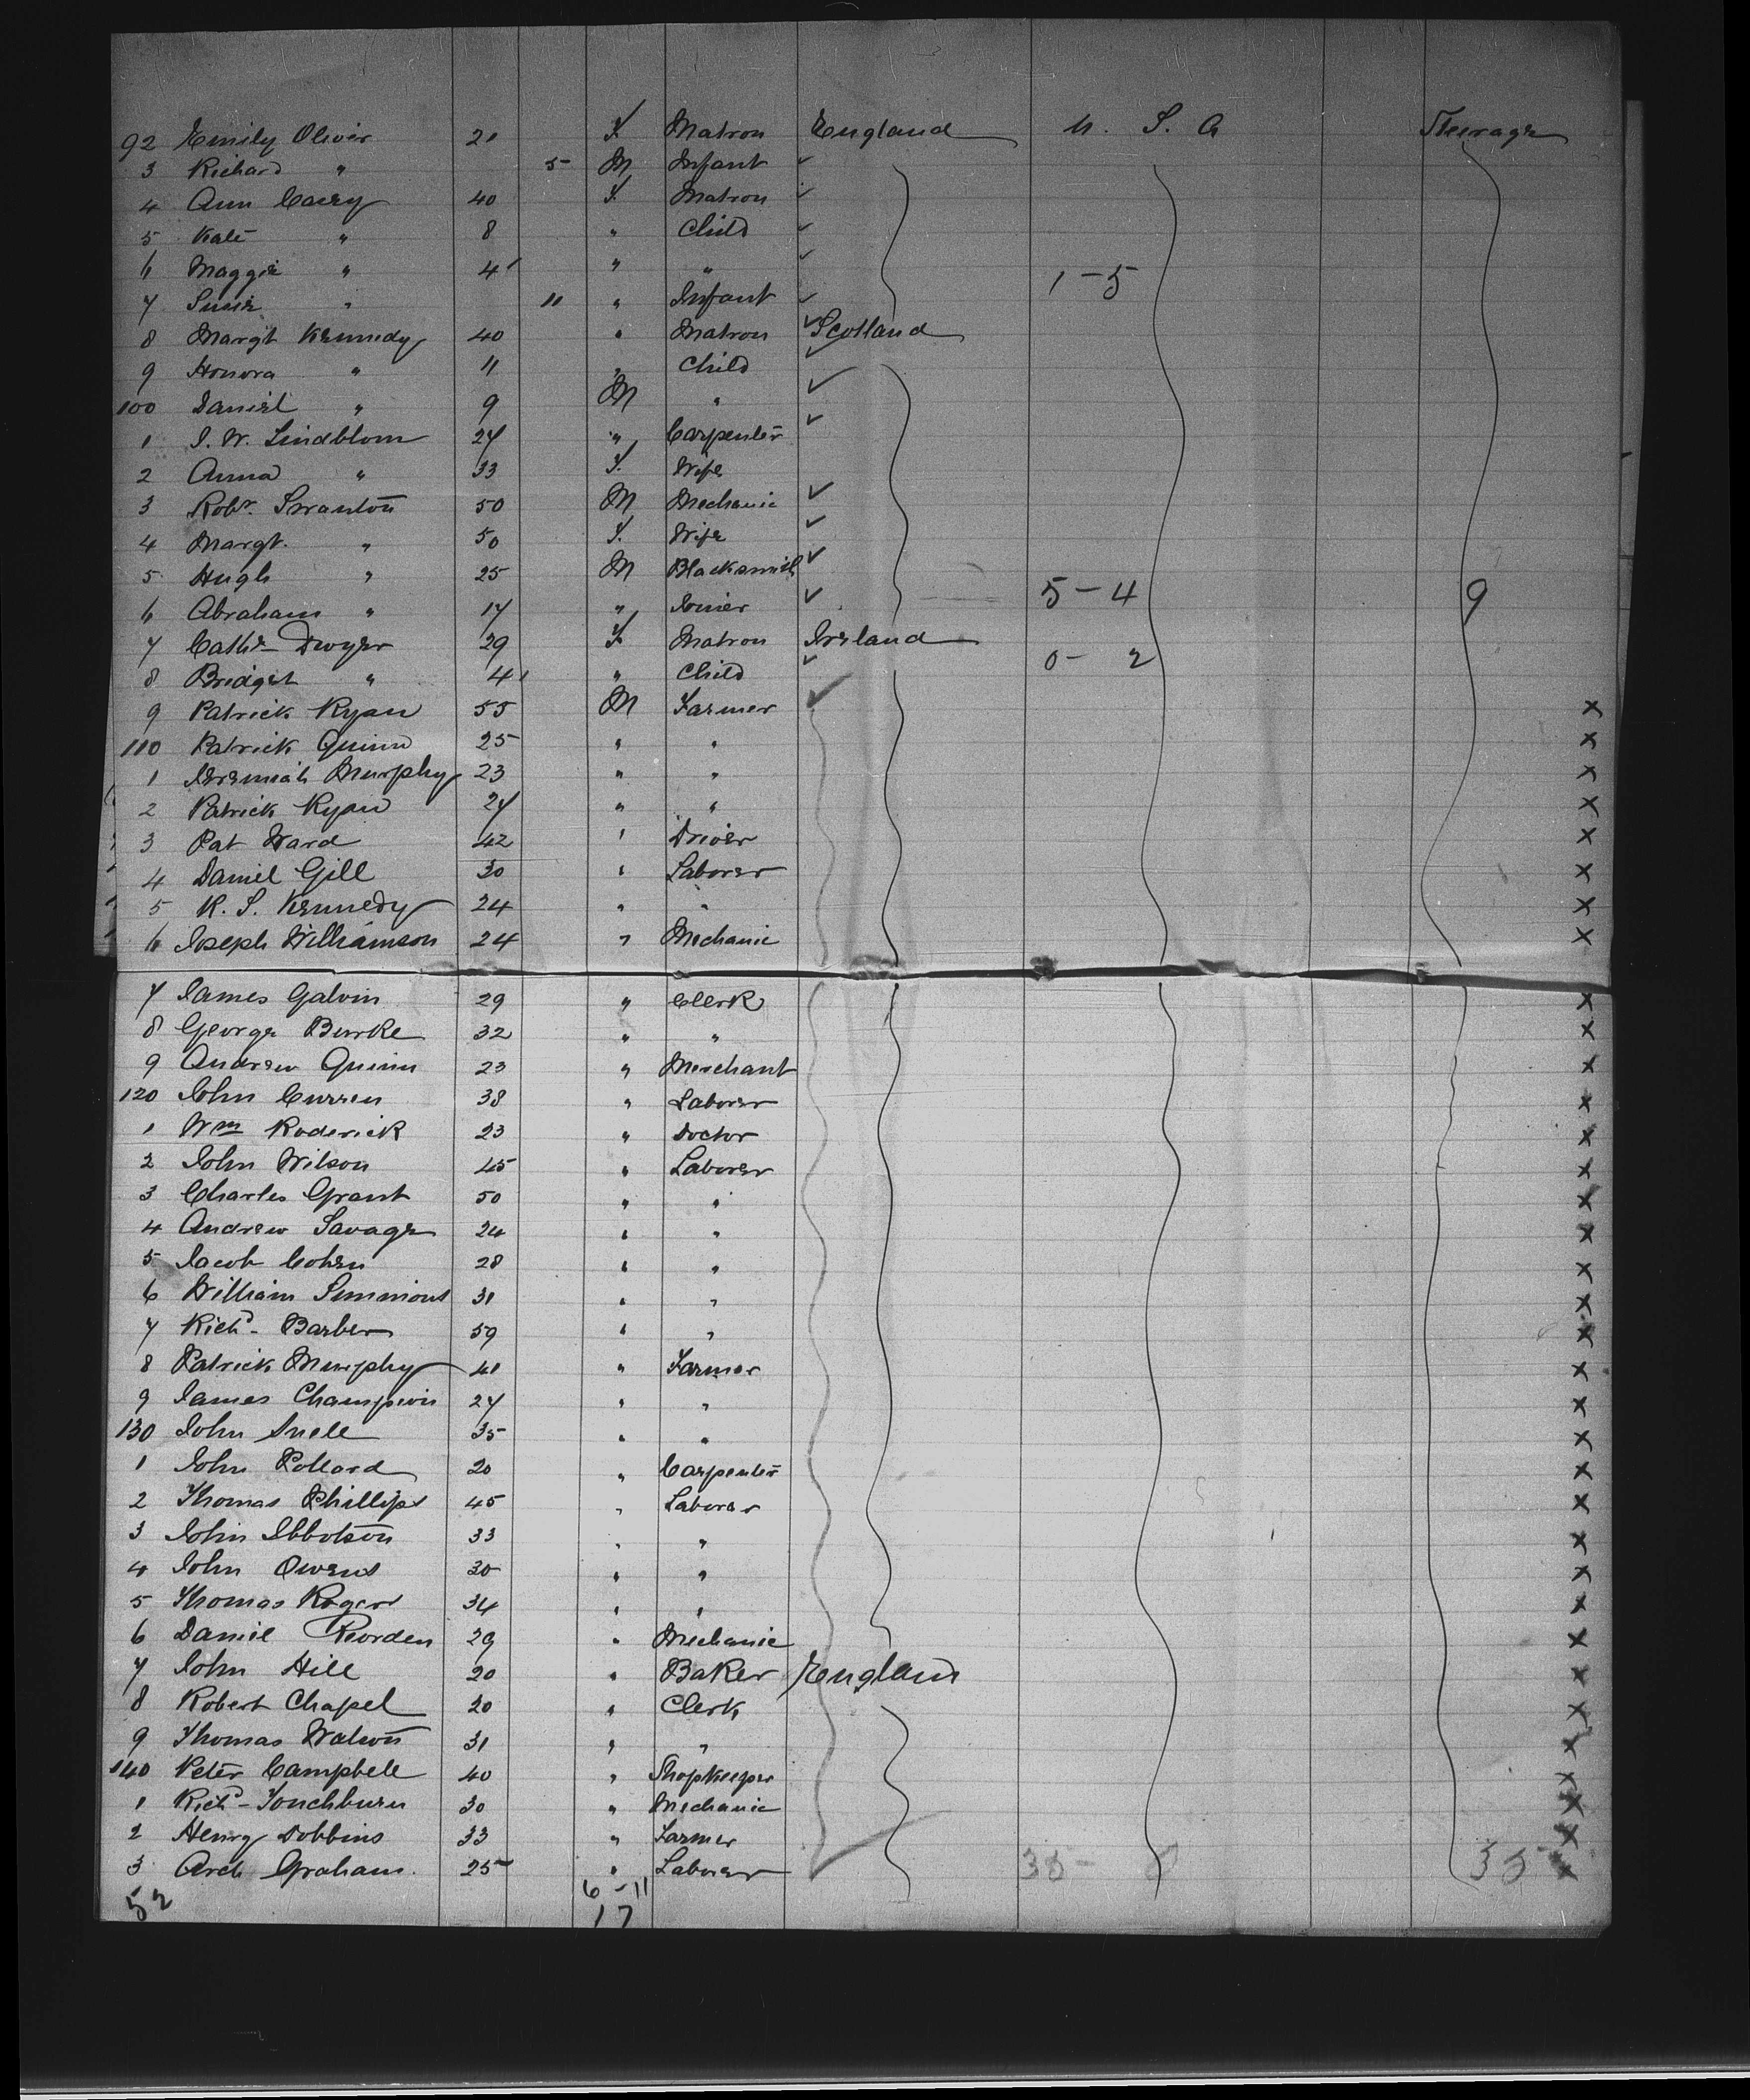 92 Emily Oliver 21 F. Matron England U. S. A Steerage
3 Richard " 5 M Infant ✓
4 Ann Casey 40 F. Matron ✓
5 Kate " 8 " Child ✓
6 Maggie " 4 " " ✓
1-5
7 Susie " 11 " Infant ✓
8 Margt Kennedy 40 " Matron ✓ Scotland
9 Honora " 11 " Child ✓
100 Daniel " 9 M " ✓
1 J. W. Lindblom 27 " Carpenter ✓
2 Anna " 33 F. Wife
3 Robt. Swanton 50 M Mechanic ✓
4 Margt. " 50 F. Wife ✓
5 Hugh " 25 M Blacksmith ✓
5-4 9
6 Abraham " 17 " Joiner ✓
7 Cathe Dwyer 29 F. Matron Ireland
0- 2
8 Bridget " 4 " Child ✓
9 Patrick Ryan 55 M Farmer ✓ x
110 Patrick Quinn 25 " " x
1 Jeremiah Murphy 23 " " x
2 Patrick Ryan 27 " " x
3 Pat Ward 42 " Driver x
4 Daniel Gill 30 " Laborer x
5 K. S. Kennedy 24 " " x
6 Joseph Williamson 24 " Mechanic x
7 James Galvin 29 " Clerk x
8 George Burke 32 " " x
9 Andrew Quinn 23 " Merchant x
120 John Curren 38 " Laborer x
1 Wm Roderick 23 " Doctor x
2 John Wilson 45 " Laborer x
3 Charles Grant 50 " " x
4 Andrew Savage 24 " " x
5 Jacob Cohen 28 " " x
6 William Simmons 31 " " x
7 Richd - Barber 59 " " x
8 Patrick Murphy 41 " Farmer x
9 James Champion 27 " " x
130 John Snell 35 " " x
1 John Pollard 20 " Carpenter x
2 Thomas Phillips 45 " Laborer x
3 John Ibbotson 33 " " x
4 John Owens 30 " " x
5 Thomas Rogers 34 " " x
6 Daniel Reorden 29 " Mechanic x
7 John Hill 20 " Baker England x
8 Robert Chapel 20 " Clerk x
9 Thomas Watson 31 " " x
140 Peter Campbell 40 " Shopkeeper x
1 Richd - 30 " Mechanic x
2 Henry Dobbins 33 " Farmer x
3 Arch Graham. 25 " Laborer 35- 0 35 x
52 6-11
17